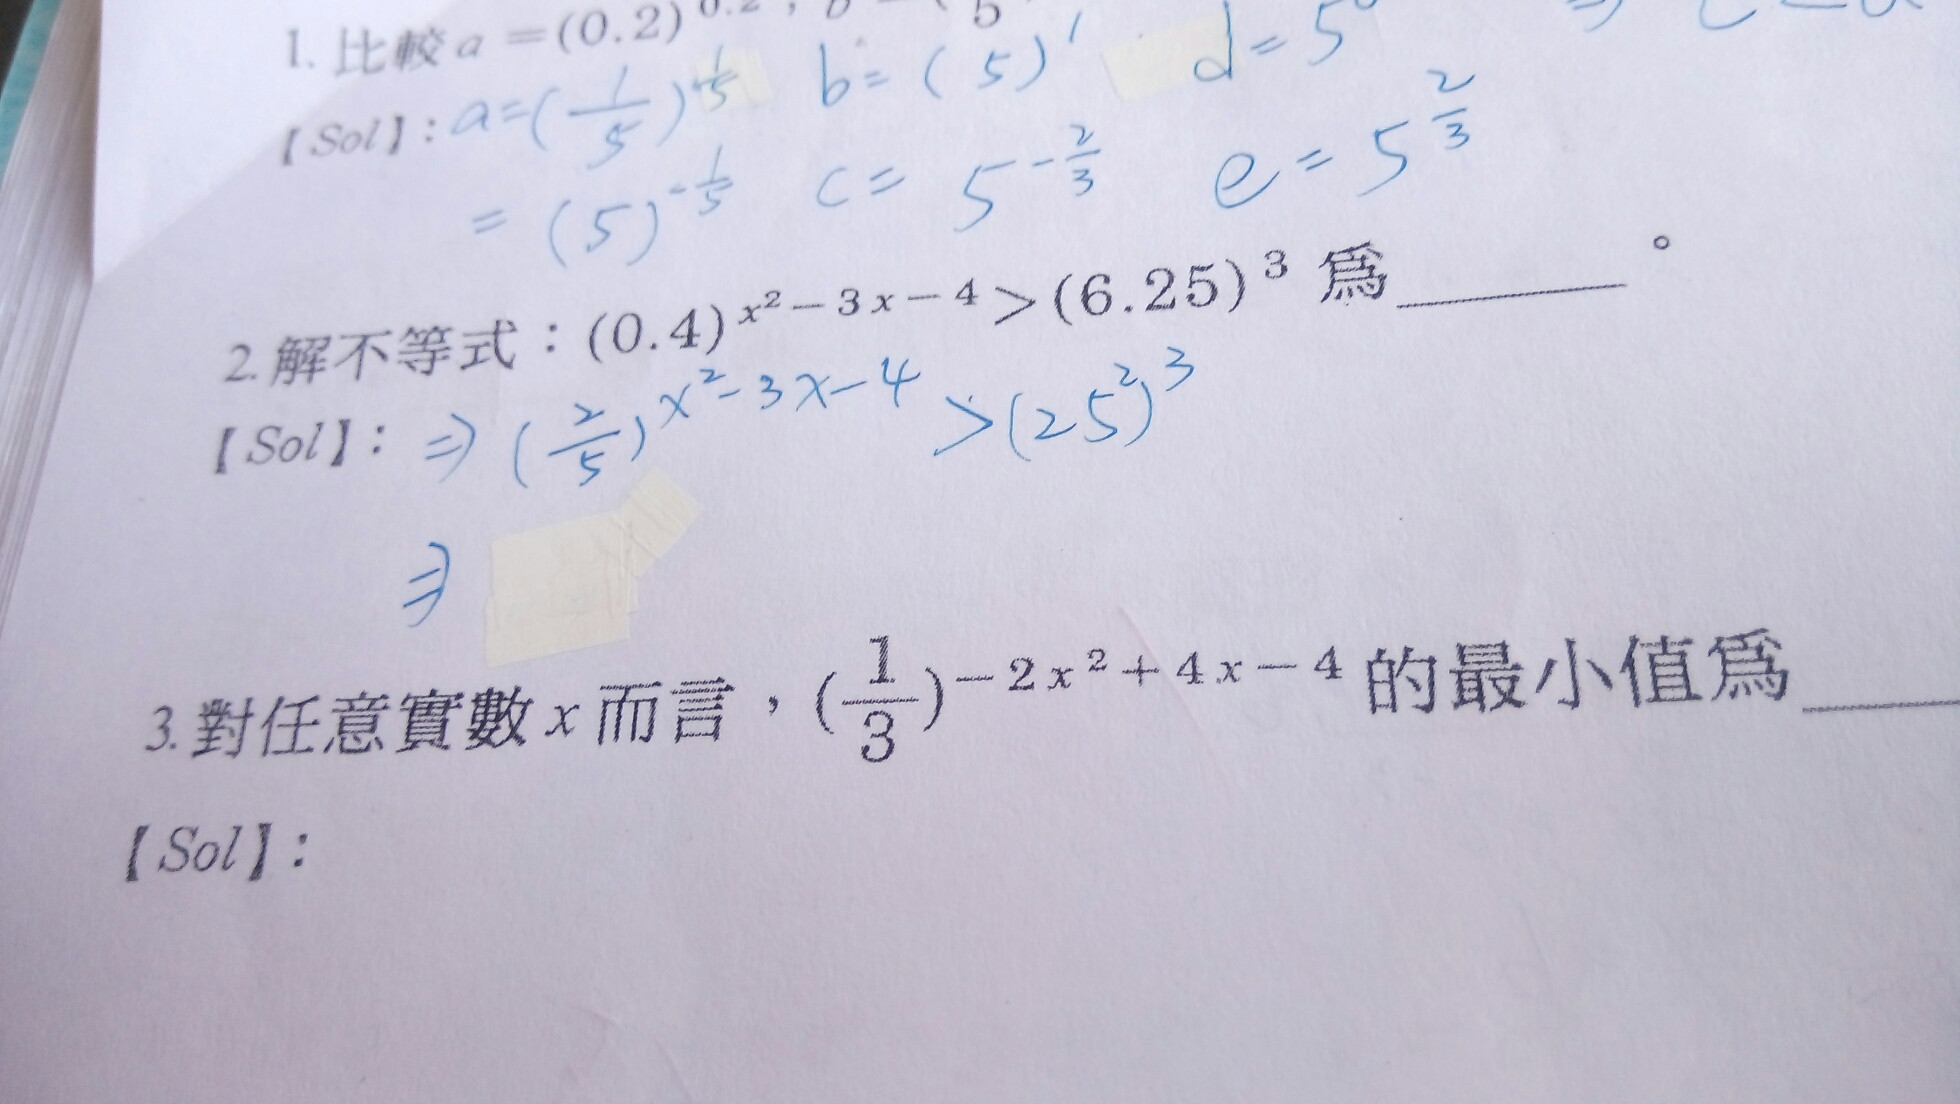 1. 比較 a = (0.2)^0.2 ,
【Sol】: a = (1/5)^(1/5) b = (5)^1 d = 5
= (5)^(-1/5) c = 5^(-2/3) e = 5^(2/3)
2. 解不等式：(0.4)^(x²－3x－4) > (6.25)³ 為______。
【Sol】: ⇒ (2/5)^(x²-3x-4) > (25²)³
⇒
3. 對任意實數 x 而言，(1/3)^(－2x²＋4x－4) 的最小值為______
【Sol】: